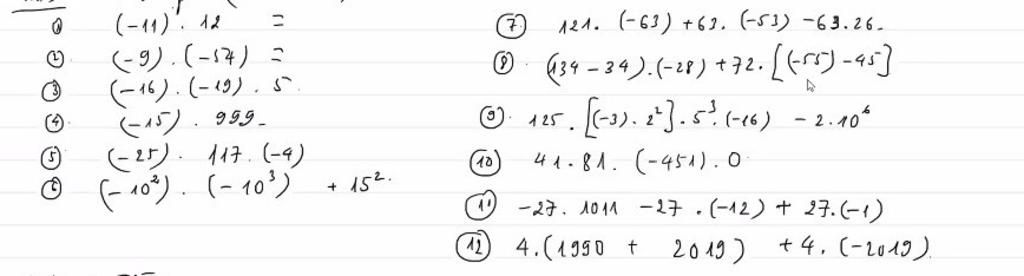 ① (-11) . 12 =
② (-9) . (-57) =
③ (-16) . (-19) . 5
④ (-15) . 999
⑤ (-25) . 117 . (-4)
⑥ (-10²) . (-10³) + 15².
⑦ 121 . (-63) + 63 . (-53) - 63 . 26
⑧ (134 - 34) . (-28) + 72 . [(-55) - 45]
⑨ 125 . [(-3) . 2²] . 5³ . (-16) - 2 . 10⁶
⑩ 41 . 81 . (-451) . 0
⑪ -27 . 1011 - 27 . (-12) + 27 . (-1)
⑫ 4 . (1990 + 2019) + 4 . (-2019)